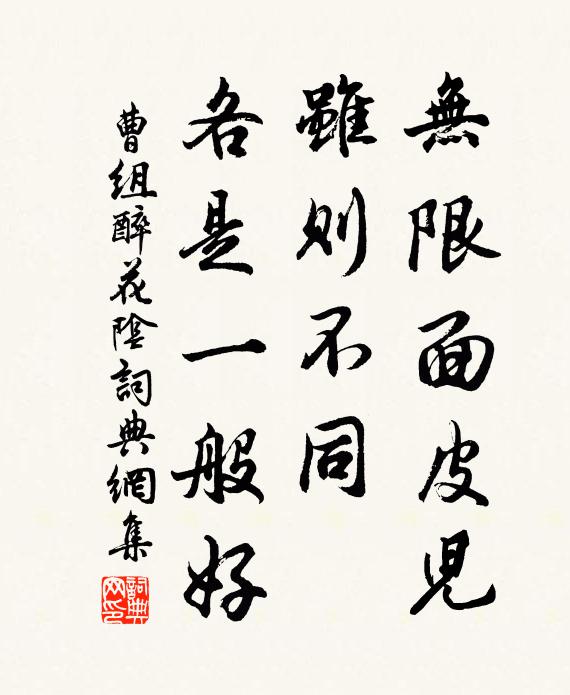 無限面皮児
雖則不同
各是一般好
曹組醉花陰詞典網集
詞典網印